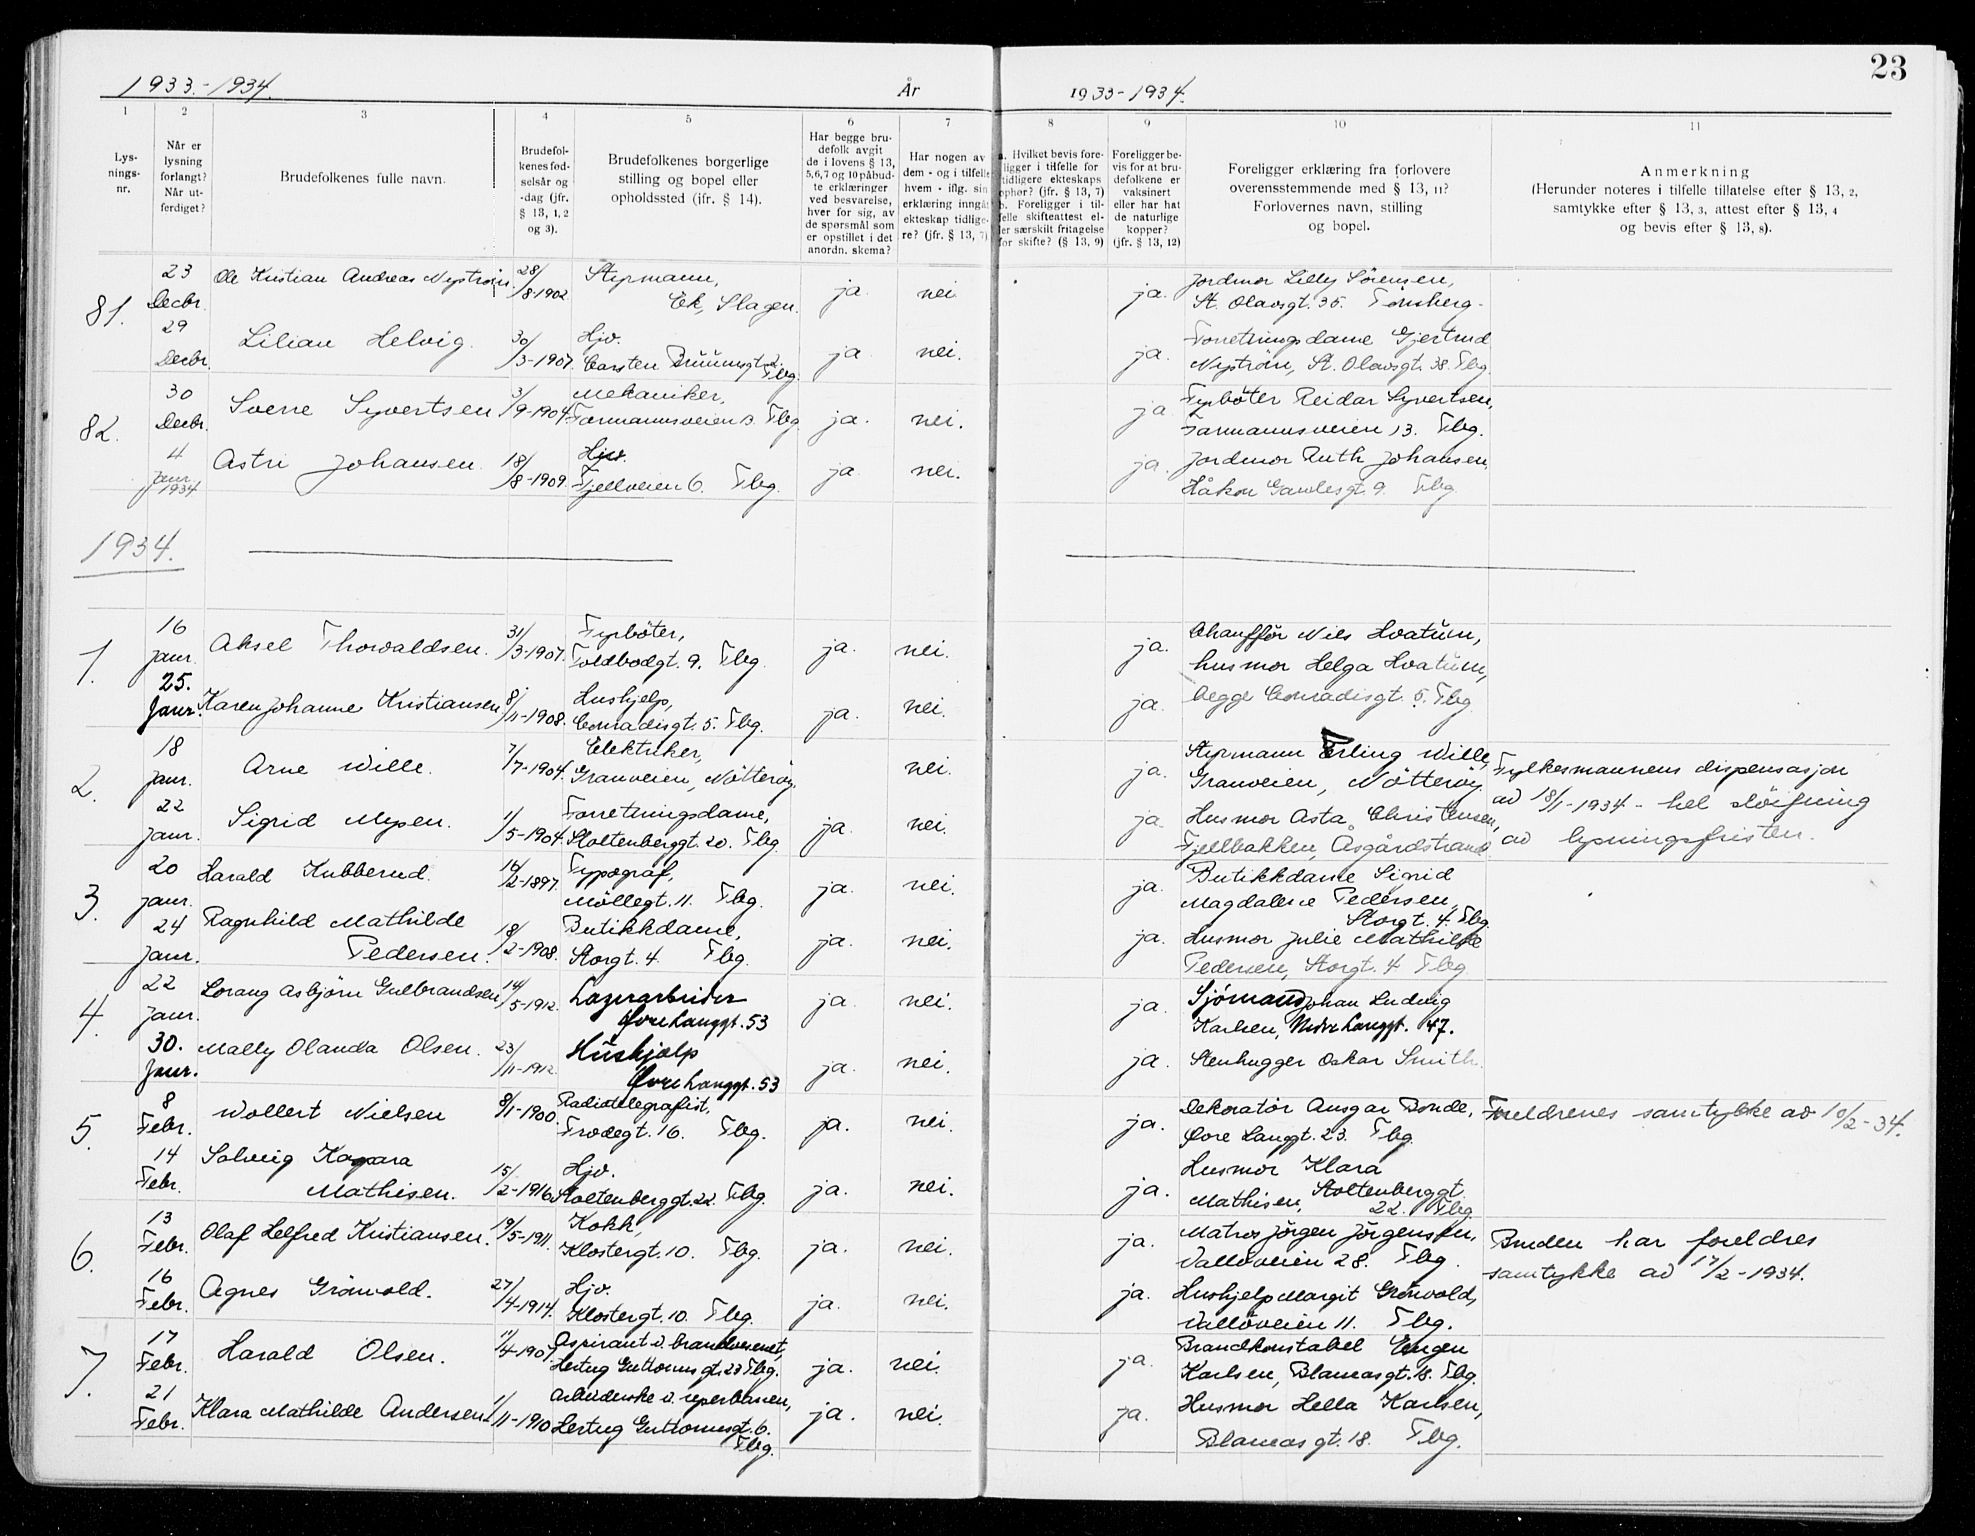 23
1933.-1934.
År
1933-1934.
1 2 3 4 5 6 7 8 9 10 11
Lys-
nings-
nr.
Når er
lysning
forlangt?
Når ut-
ferdiget?
Brudefolkenes fulle navn.
Brudefol-
kenes fød-
selsår og
-dag (jfr.
§ 13, 1, 2
og 3).
Brudefolkenes borgerlige
stilling og bopel eller
opholdssted (jfr. § 14).
Har begge bru-
defolk avgit
de i lovens § 13,
5,6,7 og 10 påbud-
te erklæringer
ved besvarelse,
hver for sig, av
de spørsmål som
er opstillet i det
anordn. skema?
Har nogen av
dem - og i tilfelle
hvem - iflg. sin
erklæring inngåt
ekteskap tidlige-
re? (jfr. § 13, 7)
a. Hvilket bevis fore-
ligger i tilfelle for
tidligere ekteskaps
ophør? (jfr. § 13, 7)
b. Foreligger i til-
felle skifteattest el-
ler særskilt fritagelse
for skifte? (§ 13, 9)
Foreligger be-
vis for at bru-
defolkene er
vaksinert
eller har hat
de naturlige
kopper?
(jfr. § 13, 12)
Foreligger erklæring fra forlovere
overensstemmende med § 13, 11?
Forlovernes navn, stilling
og bopel.
Anmerkning
(Herunder noteres i tilfelle tillatelse efter § 13, 2,
samtykke efter § 13, 3, attest efter § 13, 4
og bevis efter § 13, 8).
81.
23 Decbr. Ole Kristian Andreas Nystrøm 28/8-1902 Styrmann, ja. nei. ja. Jordmor Lilly Sörensen,
Ek, Slagen. St. Olavsgt. 35. Tønsberg.
29 Decbr. Lilian Helvig. 30/3-1907. Hjv. ja nei. ja. Forretningsdame Gjertrud
Carsten Bruunsgt. 2. Tbg. Nystrøm, St. Olavsgt. 38. Tbg
82.
30 Decbr. Sverre Syvertsen 3/9-1904. Mekaniker, ja. nei. ja Fyrböter Reidar Syvertsen,
Farmannsveien 13. Tbg. Farmannsveien 13. Tbg.
4 Janr. 1934 Astri Johansen. 18/8-1909. Hjv. ja nei. ja. Jordmor Ruth Johansen,
Fjellveien 6. Tbg. Håkon Gamlesgt. 9. Tbg.
1934.
1.
16 Janr. Aksel Thorvaldsen. 31/3-1907. Fyrböter, ja. nei. ja. Chauffør Nils Hvatum,
Toldbodgt. 9. Tbg. husmor Helga Hvatum,
25. Janr. Karen Johanne Kristiansen 8/11-1908. Hushjelp, ja. nei. ja. begge Conradisgt. 5. Tbg
Conradisgt. 5. Tbg.
2.
18 Janr. Arne Wille. 7/7-1904. Elektriker, nei. ja. Styrmann Erling Wille, Fylkesmannens dispensasjon
Granveien, Nötteröy. Granveien, Nötteröy av 18/1-1934 - hel sløifning
22 Janr. Sigrid Mysen. 1/5-1904. Forretningsdame, ja. nei. ja. Husmor Asta Christensen, av lysningsfristen.
Stoltenberggt. 20. Tbg. Fjellbakken, Åsgårdstrand
3.
20 Janr. Harald Kubberud. 14/2-1897. Typograf, ja. nei. ja. Butikkdame Sigrid
Möllegt. 11. Tbg. Magdalene Pedersen,
Storgt. 4. Tbg.
24 Janr. Ragnhild Mathilde 18/2-1908. Butikkdame, ja. nei. ja. Husmor Julie Mathilde
Pedersen. Storgt. 4. Tbg. Pedersen, Storgt. 4 Tbg
4.
22 Janr. Lorang Asbjörn Gulbrandsen 14/5-1912. Lagerarbeider ja. nei. ja. Sjømand Johan Ludvig
Øvre Langgt. 53 Karlsen, Nedre Langgt. 47.
30. Janr. Mally Olanda Olsen. 23/11-1912. Hushjelp ja. nei. ja. Stenhugger Oskar Smith
Øvre Langgt. 53
5.
8 Febr. Wollert Nielsen 8/1-1900. Radiotelegrafist, ja. nei. ja. Dekoratør Ansgar Bonde, Foreldrenes samtykke av 10/2-34.
Frodegt. 16. Tbg. Øvre Langgt. 23. Tbg.
14 Febr. Solveig 15/2-1916. Hjv. ja. nei. ja. Husmor Klara
Mathisen. Stoltenberggt. 22. Tbg. Mathisen, Stoltenberggt.
22. Tbg
6.
13 Febr. Olaf Helfred Kristiansen. 19/5-1911. Kokk, ja. nei. ja. Matros Jörgen Jörgensen, Bruden har foreldres
Klostergt. 10. Tbg. Vallöveien 28. Tbg. samtykke av 17/2-1934.
16 Febr. Agnes Grönvold. 27/4-1914. Hjv. ja. nei. ja. Hushjelp Margit Grönvold,
Klostergt. 10. Tbg. Vallöveien 11. Tbg.
7.
17 Febr. Harald Olsen. 11/4-1907. Aspirant v. brandvesenet, ja. nei. ja. Brandkonstabel Eugen
Hertug Guttormsgt. 23 Tbg. Karlsen, Blamasgt. 18. Tbg.
21 Febr. Klara Mathilde Andersen 1/11-1910 Arbeiderske v. reperbanen, ja. nei. ja. Husmor Hella Karlsen,
Hertug Guttormsgt. 6. Tbg. Blamasgt. 18. Tbg.